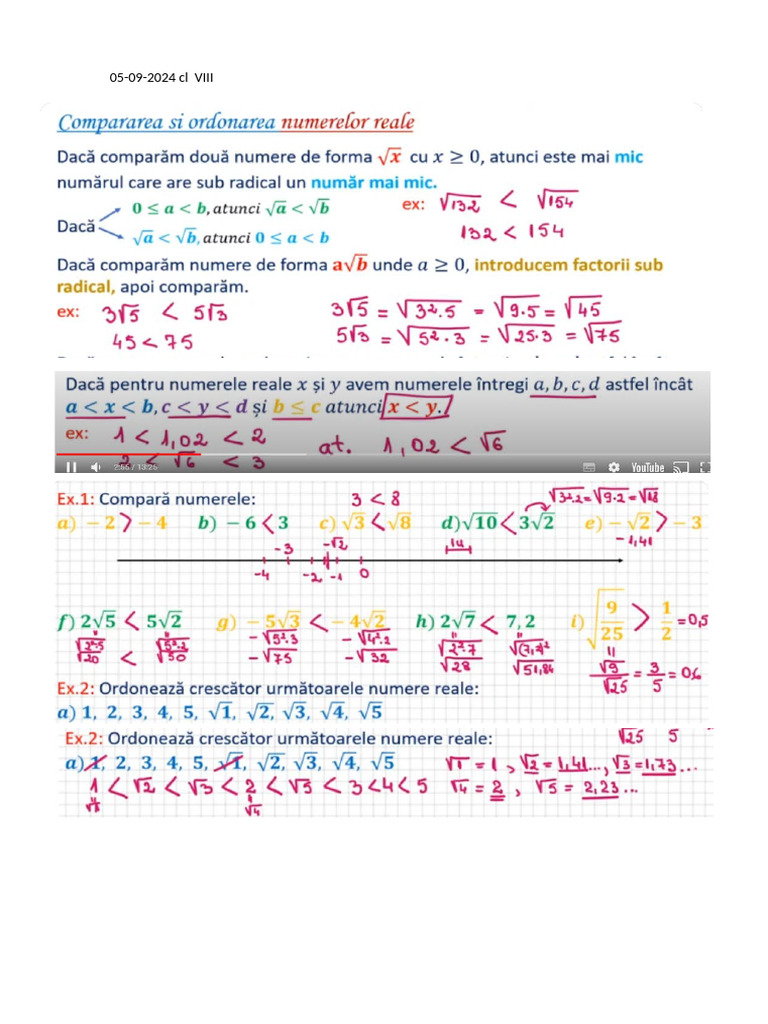 05-09-2024 cl VIII
Compararea si ordonarea numerelor reale
Dacă comparăm două numere de forma √x cu x ≥ 0, atunci este mai mic
numărul care are sub radical un număr mai mic.
0 ≤ a < b, atunci √a < √b
ex: √132 < √154
Dacă
√a < √b, atunci 0 ≤ a < b
132 < 154
Dacă comparăm numere de forma a√b unde a ≥ 0, introducem factorii sub
radical, apoi comparăm.
ex: 3√5 < 5√3
3√5 = √3².5 = √9.5 = √45
45 < 75
5√3 = √5².3 = √25.3 = √75
Dacă pentru numerele reale x și y avem numerele întregi a, b, c, d astfel încât
a < x < b, c < y < d și b ≤ c atunci x < y.
ex: 1 < 1,02 < 2
at. 1,02 < √6
2 < √6 < 3
2:55 / 13:25
YouTube
Ex.1: Compară numerele:
3 < 8
√3².2 = √9.2 = √18
a) − 2 > − 4 b) − 6 < 3 c) √3 < √8 d) √10 < 3√2 e) − √2 > − 3
− 1,41
-3 -√2
-4 -2 -1 0
f) 2√5 < 5√2 g) − 5√3 < − 4√2 h) 2√7 < 7, 2 i) √9/25 > 1/2 = 0,5
√2².5 √5².2 −√5².3 −√4².2 √2².7 √(7,2)²
√20 < √50 −√75 −√32 √28 √51,84
√9/√25 = 3/5 = 0,6
Ex.2: Ordonează crescător următoarele numere reale:
a) 1, 2, 3, 4, 5, √1, √2, √3, √4, √5
Ex.2: Ordonează crescător următoarele numere reale:
√25 5
a) 1, 2, 3, 4, 5, √1, √2, √3, √4, √5
√1 = 1 , √2 = 1,41..., √3 = 1,73...
1 < √2 < √3 < 2 < √5 < 3 < 4 < 5
√4 = 2 , √5 = 2,23...
√1 √4